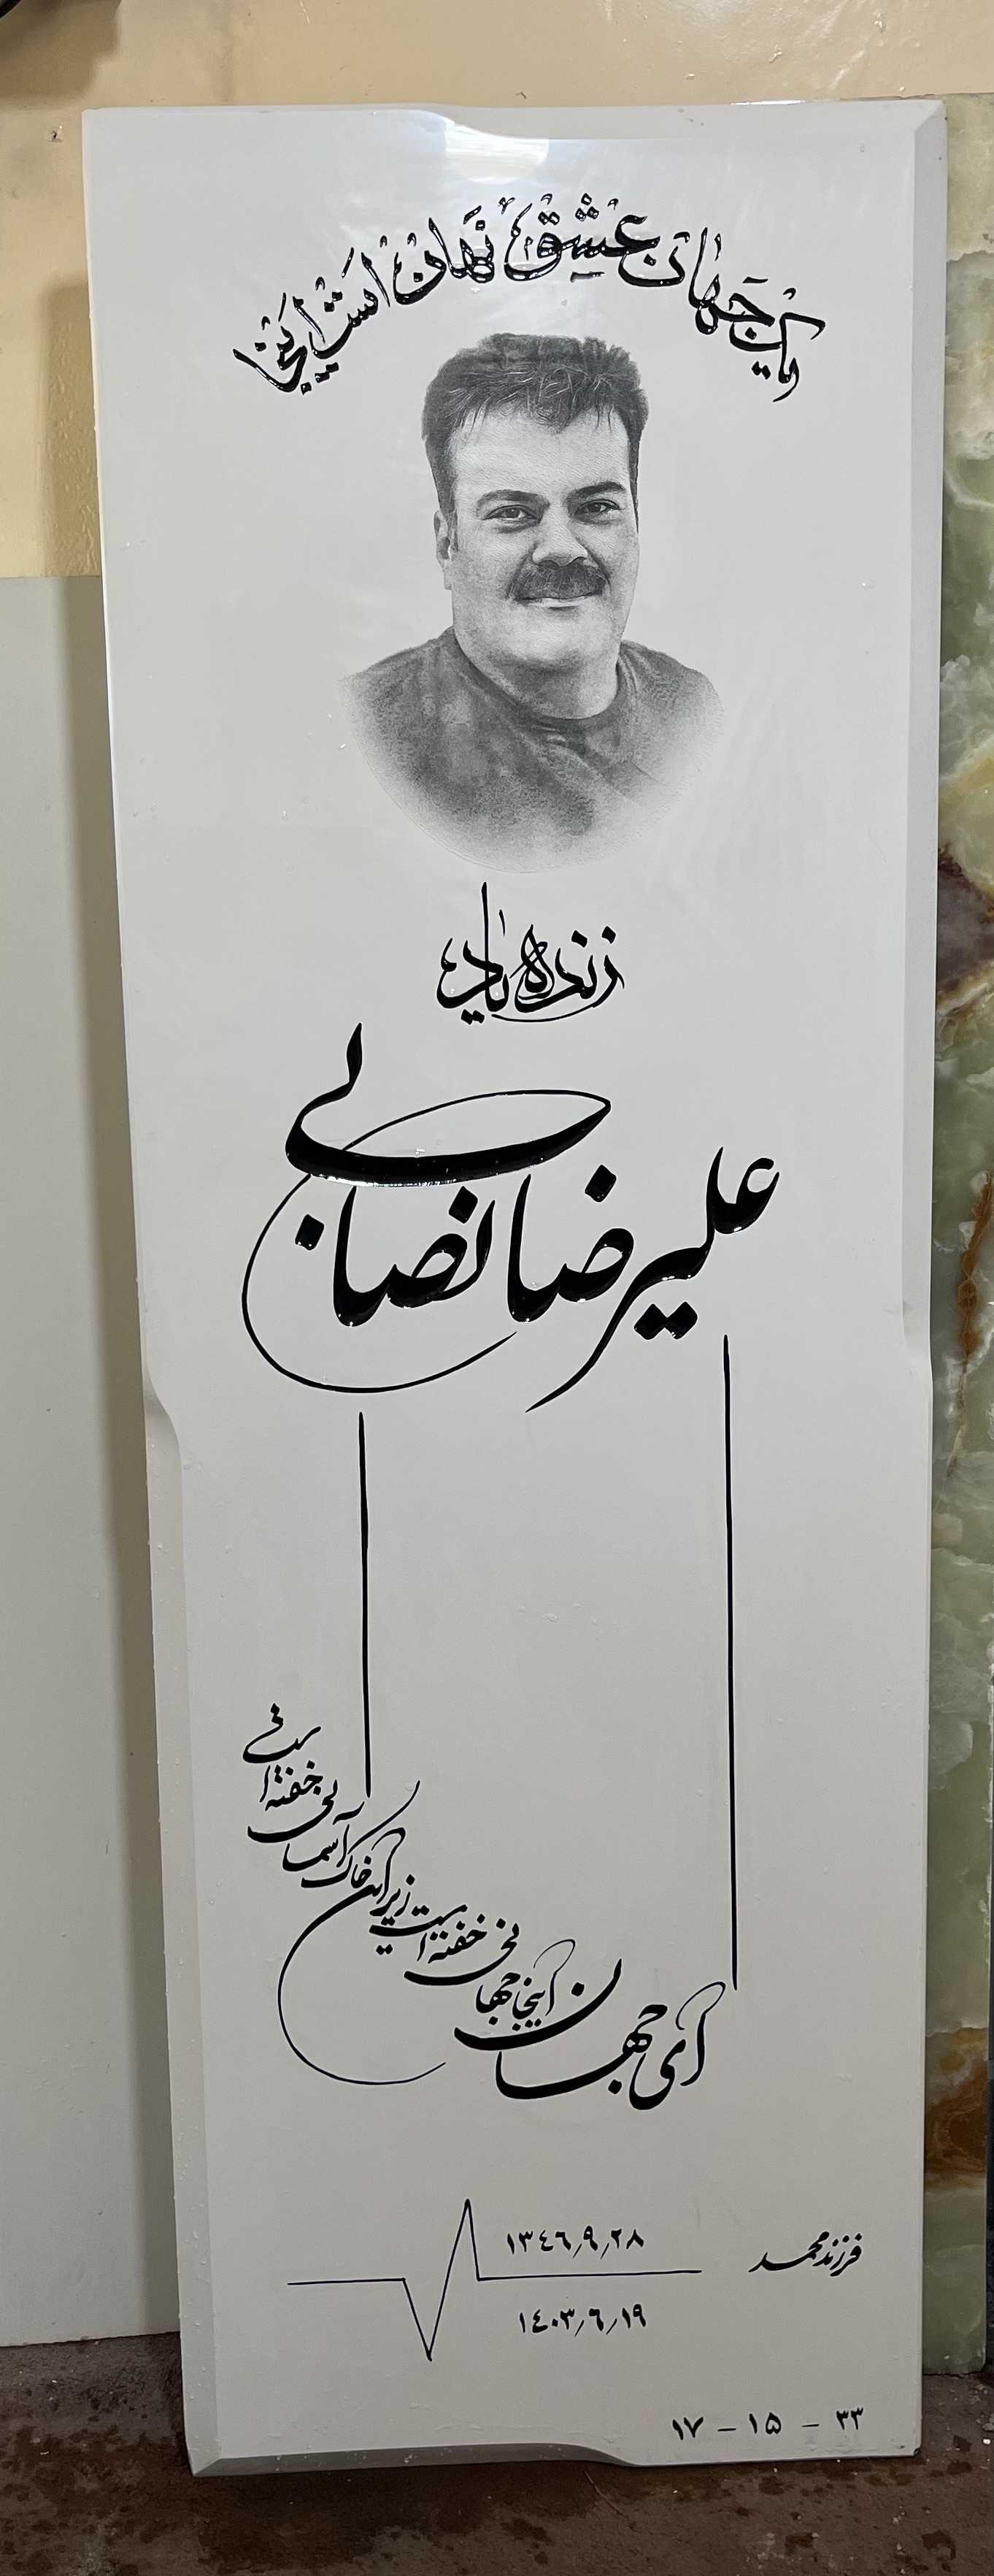 یک جهان عشق نهان است اینجا
زنده یاد
علیرضا نصابی
ای جهان اینجا جهانی خفته است
زیر این خاک آسمانی خفته است
۱۳۴۶/۹/۲۸
فرزند محمد
۱۴۰۳/۶/۱۹
۱۷ - ۱۵ - ۳۳